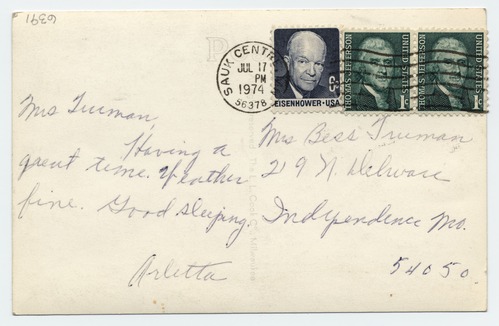 6391
SAUK CENTRE
JUL 17
PM
1974
56378
6c
EISENHOWER·USA
THOMAS JEFFERSON
UNITED STATES
1c
THOMAS JEFFERSON
UNITED STATES
1c
Mrs Truman,
Having a
great time. Weather
fine. Good sleeping.
Arletta
Mrs Bess Truman
219 N. Delware
Independence Mo.
54050